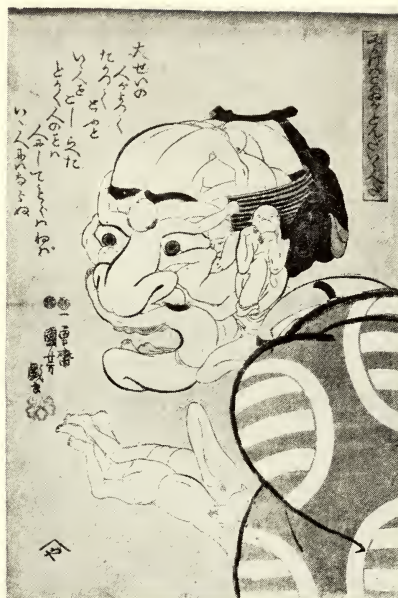 みかけハこハゐがとんだいゝ人だ
大ぜいの
人がよつて
たかつて とふ〳〵
いゝ人を こしらへた
とかく人のことハ
人にしてもらハねバ
いゝ人にハならぬ
一勇齋
國芳
戯画
や